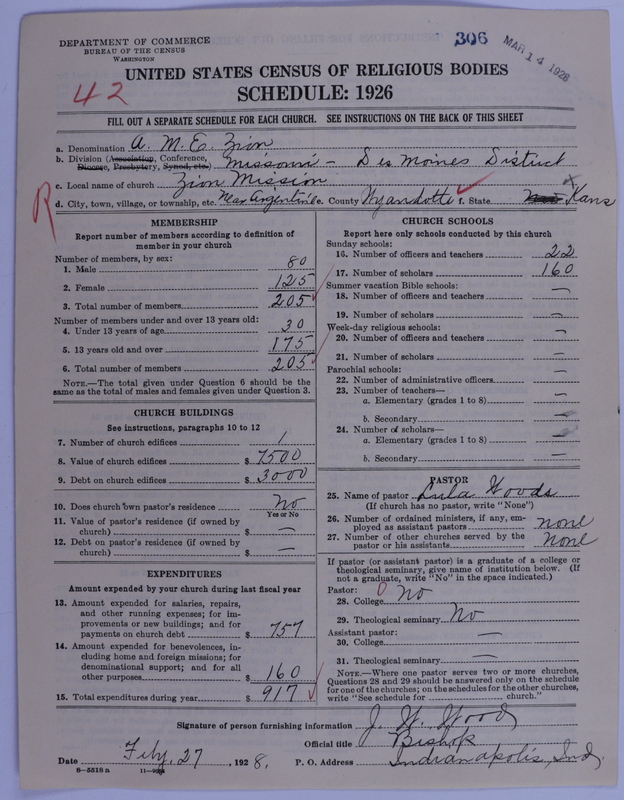 DEPARTMENT OF COMMERCE
BUREAU OF THE CENSUS
WASHINGTON
306
MAR 14 1928
42
UNITED STATES CENSUS OF RELIGIOUS BODIES
SCHEDULE: 1926
FILL OUT A SEPARATE SCHEDULE FOR EACH CHURCH. SEE INSTRUCTIONS ON THE BACK OF THIS SHEET
a. Denomination A. M. E. Zion
b. Division (Association, Conference, Missouri - Des Moines District
Diocese, Presbytery, Synod, etc.)
c. Local name of church Zion Mission
d. City, town, village, or township, etc. Near Argentine e. County Wyandotte f. State Kans
R
MEMBERSHIP
Report number of members according to definition of
member in your church
Number of members, by sex:
1. Male 80
2. Female 125
3. Total number of members 205
Number of members under and over 13 years old:
4. Under 13 years of age 30
5. 13 years old and over 175
6. Total number of members 205
NOTE.—The total given under Question 6 should be the
same as the total of males and females given under Question 3.
CHURCH BUILDINGS
See instructions, paragraphs 10 to 12
7. Number of church edifices 1
8. Value of church edifices $ 7500
9. Debt on church edifices $ 3000
10. Does church own pastor's residence No
Yes or No
11. Value of pastor's residence (if owned by
church) $ —
12. Debt on pastor's residence (if owned by
church) $ —
EXPENDITURES
Amount expended by your church during last fiscal year
13. Amount expended for salaries, repairs,
and other running expenses; for im-
provements or new buildings; and for
payments on church debt $ 757
14. Amount expended for benevolences, in-
cluding home and foreign missions; for
denominational support; and for all
other purposes $ 160
15. Total expenditures during year $ 917
CHURCH SCHOOLS
Report here only schools conducted by this church
Sunday schools:
16. Number of officers and teachers 22
17. Number of scholars 160
Summer vacation Bible schools:
18. Number of officers and teachers —
19. Number of scholars —
Week-day religious schools:
20. Number of officers and teachers —
21. Number of scholars —
Parochial schools:
22. Number of administrative officers —
23. Number of teachers—
a. Elementary (grades 1 to 8) —
b. Secondary —
24. Number of scholars—
a. Elementary (grades 1 to 8) —
b. Secondary —
PASTOR
25. Name of pastor Lula Woods
(If church has no pastor, write "None")
26. Number of ordained ministers, if any, em-
ployed as assistant pastors none
27. Number of other churches served by the
pastor or his assistants None
If pastor (or assistant pastor) is a graduate of a college or
theological seminary, give name of institution below. (If
not a graduate, write "No" in the space indicated.)
Pastor: 0
28. College No
29. Theological seminary No
Assistant pastor:
30. College —
31. Theological seminary —
NOTE.—Where one pastor serves two or more churches,
Questions 28 and 29 should be answered only on the schedule
for one of the churches; on the schedules for the other churches,
write "See schedule for church."
Signature of person furnishing information J. W. Wood
Official title Bishop
Date Feby. 27, 1928. P. O. Address Indianapolis, Ind.